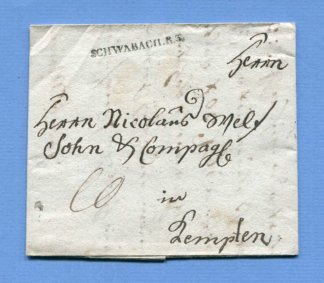 SCHWABACH.R.3.
Herrn
Herrn Nicolaus Mel
Sohn & Compagl
in
Kempten